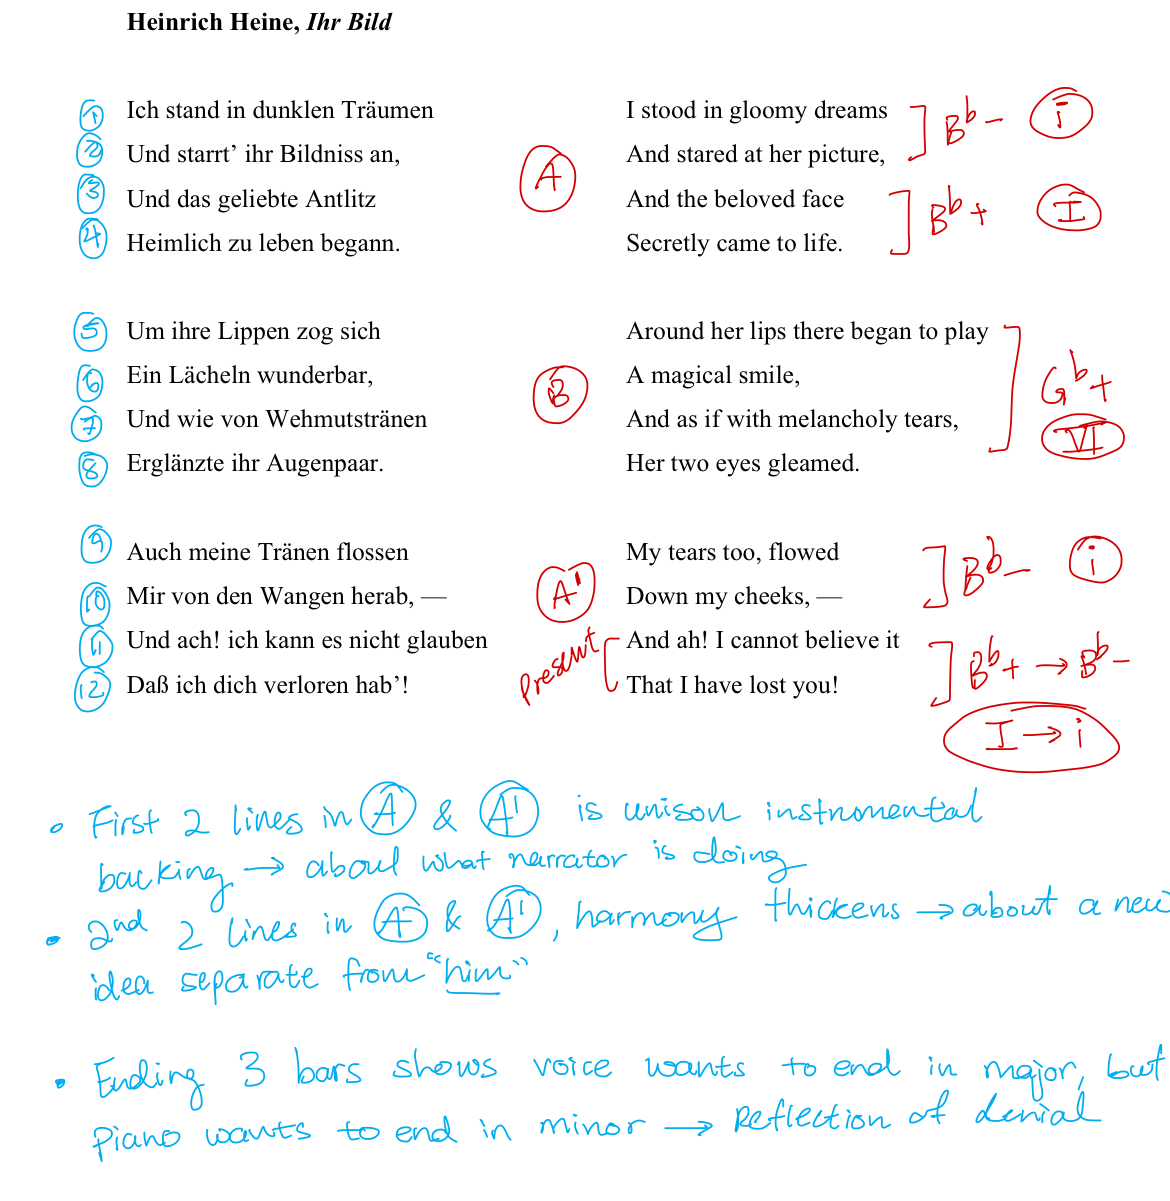 Heinrich Heine, Ihr Bild
① Ich stand in dunklen Träumen I stood in gloomy dreams ] B♭- i
② Und starrt’ ihr Bildniss an, A And stared at her picture,
③ Und das geliebte Antlitz And the beloved face ] B♭+ I
④ Heimlich zu leben begann. Secretly came to life.
⑤ Um ihre Lippen zog sich Around her lips there began to play
⑥ Ein Lächeln wunderbar, B A magical smile, ] G♭+
⑦ Und wie von Wehmutstränen And as if with melancholy tears, VI
⑧ Erglänzte ihr Augenpaar. Her two eyes gleamed.
⑨ Auch meine Tränen flossen My tears too, flowed ] B♭- i
⑩ Mir von den Wangen herab, — A' Down my cheeks, —
⑪ Und ach! ich kann es nicht glauben Present [ And ah! I cannot believe it ] B♭+ → B♭-
⑫ Daß ich dich verloren hab’! That I have lost you!
I → i
• First 2 lines in A & A' is unison instromental
backing → about what narrator is doing
• 2nd 2 lines in A & A', harmony thickens → about a new
idea separate from "him"
• Ending 3 bars shows voice wants to end in major, but
piano wants to end in minor → Reflection of denial